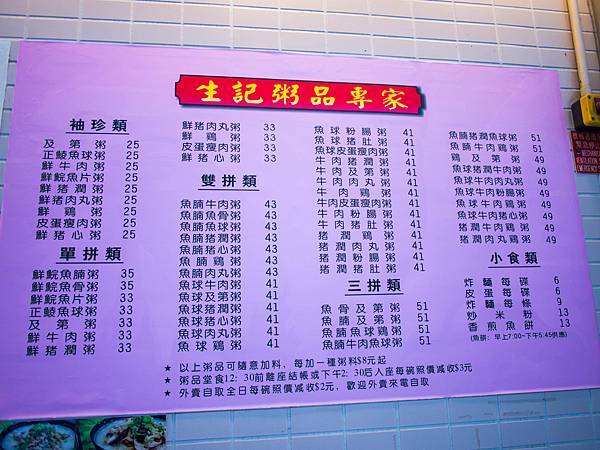 生記粥品專家
袖珍類
及第粥 25
正鯪魚球粥 25
鮮牛肉粥 25
鮮鯇魚片粥 25
鮮豬潤粥 25
鮮豬肉丸粥 25
鮮雞粥 25
皮蛋瘦肉粥 25
鮮豬心粥 25
單拼類
鮮鯇魚腩粥 35
鮮鯇魚骨粥 35
鮮鯇魚片粥 33
正鯪魚球粥 33
及第粥 33
鮮牛肉粥 33
鮮豬潤粥 33
鮮豬肉丸粥 33
鮮雞粥 33
皮蛋瘦肉粥 33
鮮豬心粥 33
雙拼類
魚腩牛肉粥 43
魚腩魚骨粥 43
魚腩魚球粥 43
魚腩豬潤粥 43
魚腩豬心粥 43
魚腩雞粥 43
魚腩肉丸粥 43
魚球牛肉粥 41
魚球及第粥 41
魚球豬潤粥 41
魚球豬心粥 41
魚球肉丸粥 41
魚球雞粥 41
魚球粉腸粥 41
魚球豬肚粥 41
魚球皮蛋瘦肉粥 41
牛肉豬潤粥 41
牛肉及第粥 41
牛肉肉丸粥 41
牛肉雞粥 41
牛肉皮蛋瘦肉粥 41
牛肉粉腸粥 41
牛肉豬肚粥 41
豬潤雞粥 41
豬潤肉丸粥 41
豬潤豬肚粥 41
三拼類
魚骨及第粥 51
魚腩及第粥 51
魚腩魚球雞粥 51
魚腩牛肉魚球粥 51
魚腩豬潤魚球粥 51
魚腩牛肉雞粥 51
雞及第粥 49
魚球豬潤牛肉粥 49
魚球牛肉肉丸粥 49
魚球牛肉粉腸粥 49
魚球牛肉雞粥 49
魚球牛肉豬心粥 49
豬潤牛肉雞粥 49
豬潤肉丸雞粥 49
小食類
炸麵每碟 6
皮蛋每碟 6
炸麵每條 9
炒米粉 13
香煎魚餅 13
(魚餅: 早上7:00~下午5:45供應)
★ 以上粥品可隨意加料, 每加一種粥料$8元起
★ 粥品堂食12: 30前離座結帳或下午2: 30后入座每碗照價減收$3元
★ 外賣自取全日每碗照價減收$2元, 歡迎外賣來電自取